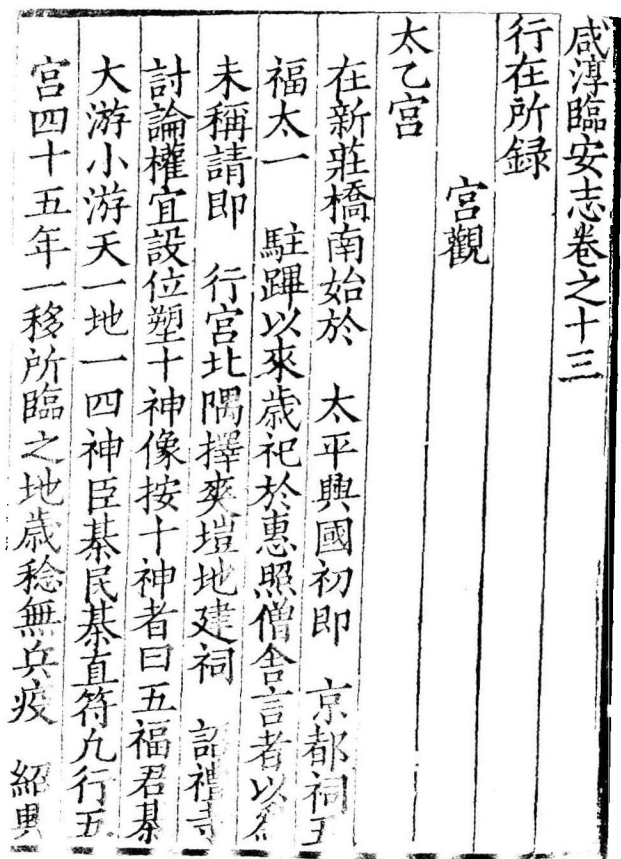 咸淳臨安志卷之十三
行在所録
宮觀
太乙宮
在新莊橋南始於　太平興國初即　京都祠五
福太一　駐蹕以來歲祀於惠照僧舍言者以爲
未稱請即　行宮北隅擇爽塏地建祠　詔禮寺
討論權宜設位塑十神像按十神者曰五福君綦
大游小游天一地一四神臣綦民綦直符凡行五
宮四十五年一移所臨之地歲稔無兵疫　紹興